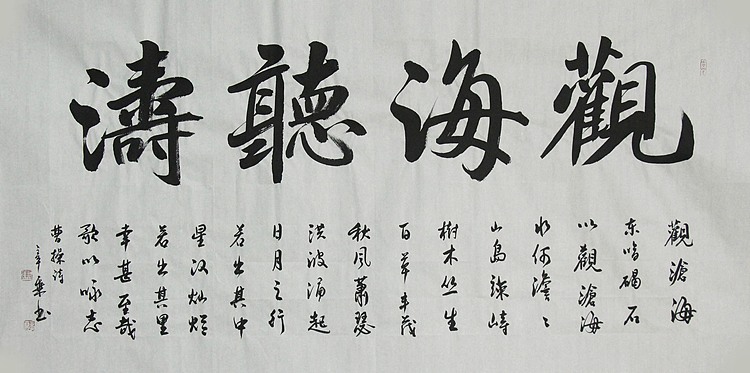 觀海聽濤
觀滄海
东临碣石
以觀滄海
水何澹〻
山島竦峙
樹木丛生
百草丰茂
秋风蕭瑟
洪波涌起
日月之行
若出其中
星汉灿烂
若出其里
幸甚至哉
歌以咏志
曹操诗